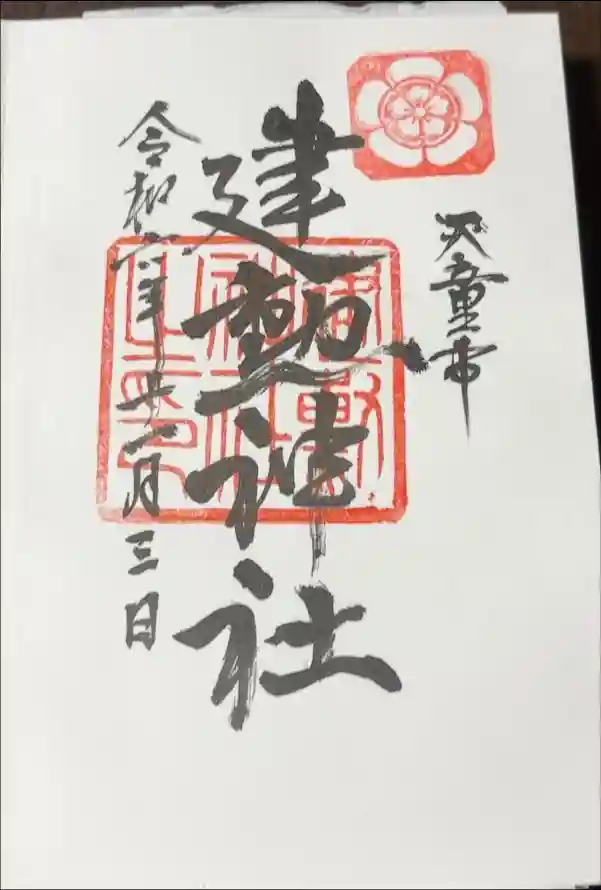 天童市
建勲神社
令和六年十一月三日